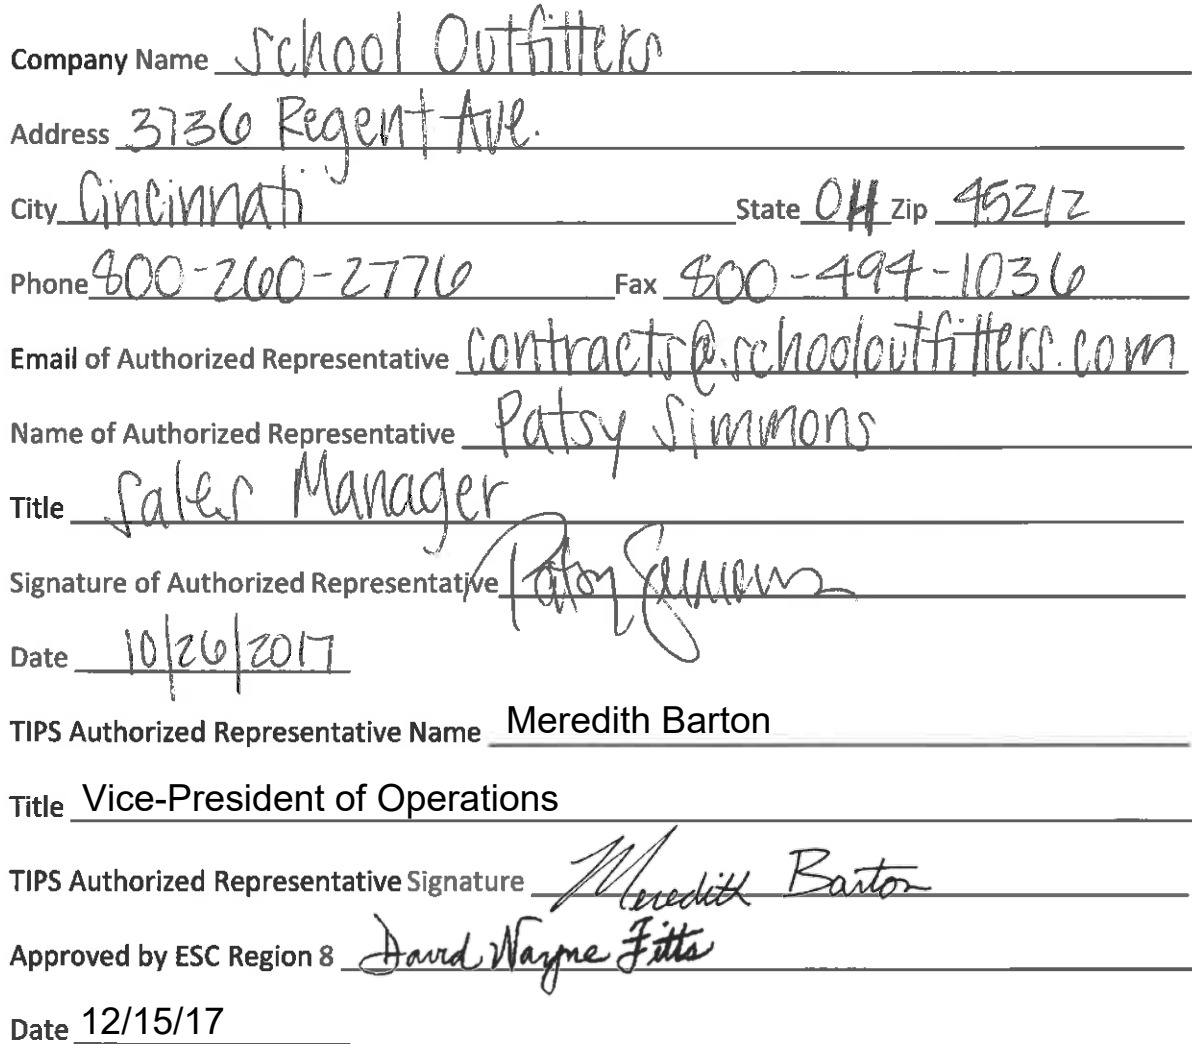 Company Name School Outfitters
Address 3736 Regent Ave.
City Cincinnati State OH Zip 45212
Phone 800-260-2776 Fax 800-494-1036
Email of Authorized Representative contracts@schooloutfitters.com
Name of Authorized Representative Patsy Simmons
Title Sales Manager
Signature of Authorized Representative Patsy Simmons
Date 10/26/2017
TIPS Authorized Representative Name Meredith Barton
Title Vice-President of Operations
TIPS Authorized Representative Signature Meredith Barton
Approved by ESC Region 8 David Wayne Fitts
Date 12/15/17